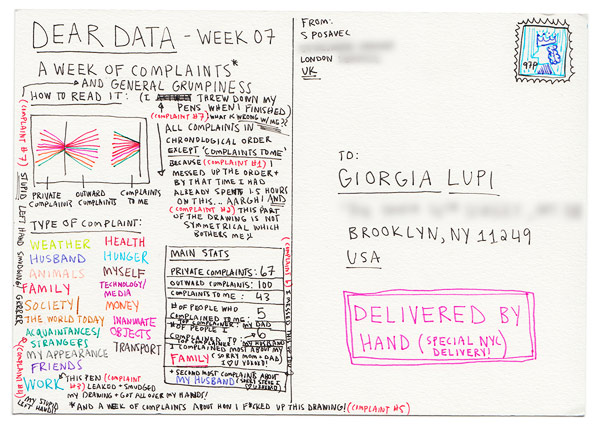 DEAR DATA - WEEK 07
A WEEK OF COMPLAINTS*
AND GENERAL GRUMPINESS
HOW TO READ IT: (I THREW DOWN MY
PENS WHEN I FINISHED)
(COMPLAINT #7) WHAT IS WRONG W/ME??
ALL COMPLAINTS IN
CHRONOLOGICAL ORDER
EXCEPT 'COMPLAINTS TO ME'
BECAUSE (COMPLAINT #1) I
MESSED UP THE ORDER +
BY THAT TIME I HAD
ALREADY SPENT 1.5 HOURS
ON THIS... AARGH! AND
(COMPLAINT #2) THIS PART
OF THE DRAWING IS NOT
SYMMETRICAL WHICH
BOTHERS ME
PRIVATE COMPLAINTS
OUTWARD COMPLAINTS
COMPLAINTS TO ME
(COMPLAINT #7) STUPID LEFT HAND SMUDGING! GRRRR
TYPE OF COMPLAINT:
WEATHER
HUSBAND
ANIMALS
FAMILY
SOCIETY/
THE WORLD TODAY
ACQUAINTANCES/
STRANGERS
MY APPEARANCE
FRIENDS
WORK
HEALTH
HUNGER
MYSELF
TECHNOLOGY/
MEDIA
MONEY
INANIMATE
OBJECTS
TRANSPORT
MAIN STATS
PRIVATE COMPLAINTS: 67
OUTWARD COMPLAINTS: 100
COMPLAINTS TO ME: 43
# OF PEOPLE WHO
COMPLAINED TO ME: 5
TOP COMPLAINER: MY DAD
# OF PEOPLE I
COMPLAINED TO: 6
MY HUSBAND
I COMPLAINED MOST ABOUT MY
FAMILY (SORRY MOM + DAD!
I ♥ U LOADS!)
+ SECOND MOST COMPLAINTS ABOUT
MY HUSBAND
(COMPLAINT #4)
THIS PEN (COMPLAINT
#3) LEAKED + SMUDGED
MY DRAWING + GOT ALL OVER MY HANDS!
MY STUPID
LEFT HAND!!
*AND A WEEK OF COMPLAINTS ABOUT HOW I F*CKED UP THIS DRAWING! (COMPLAINT #5)
FROM:
S POSAVEC
LONDON
UK
97P
TO:
GIORGIA LUPI
BROOKLYN, NY 11249
USA
DELIVERED BY
HAND (SPECIAL NYC
DELIVERY!)